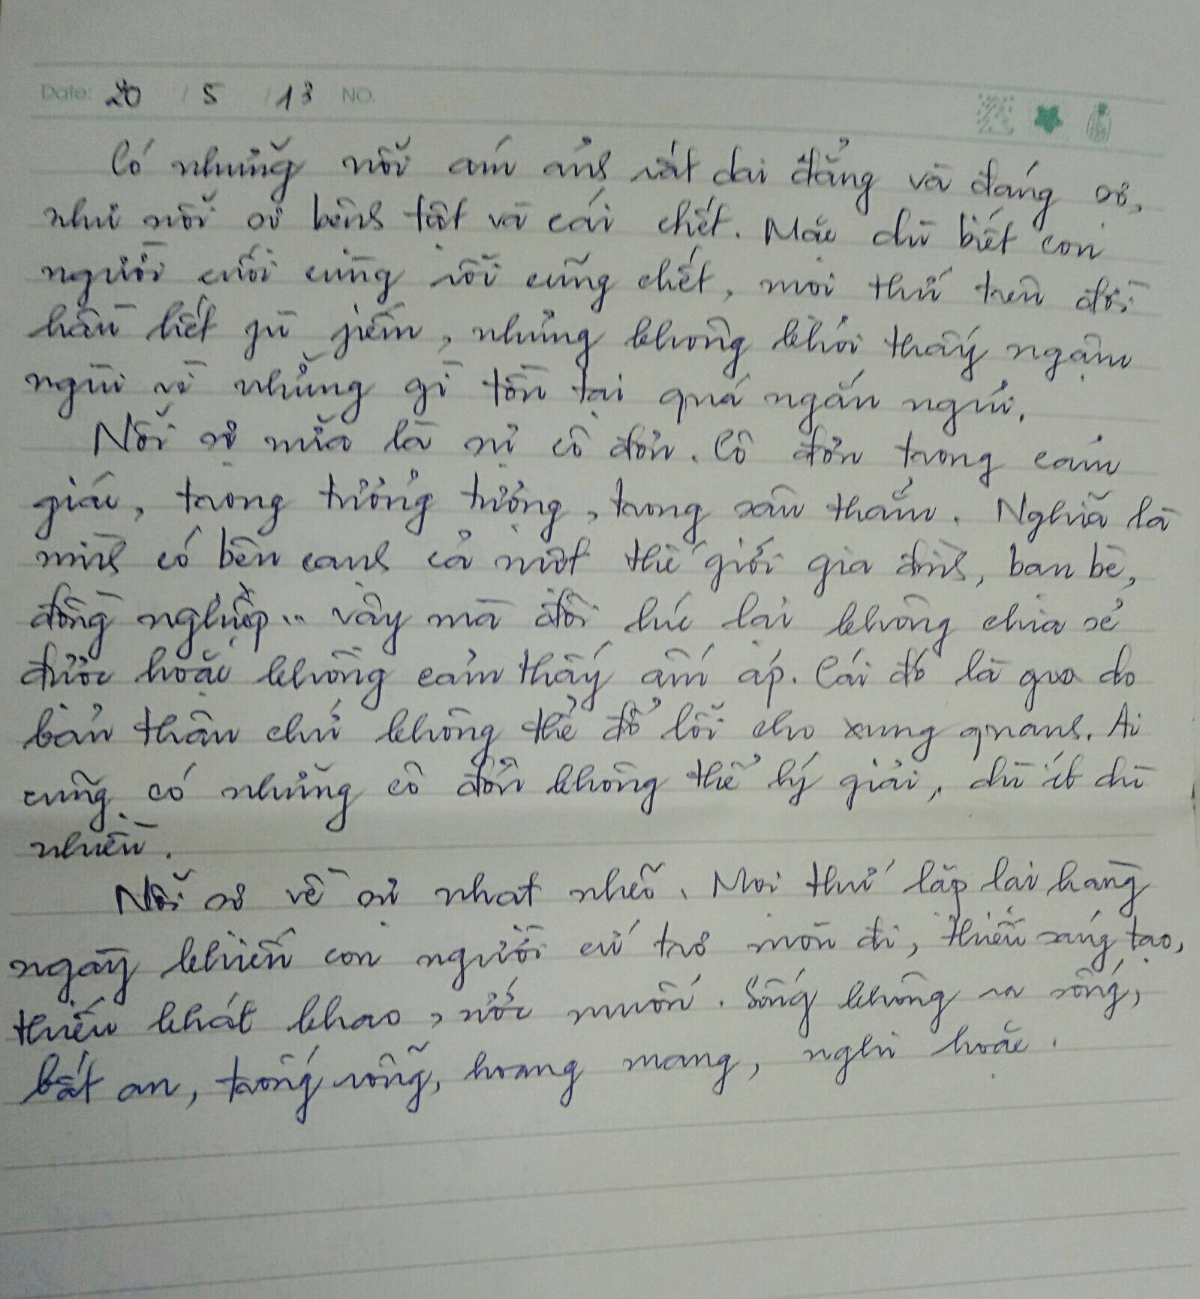 Date: 20 / 5 / 13 NO.
Có những nỗi ám ảnh rất dai đẳng và đáng sợ,
như nỗi sợ bệnh tật và cái chết. Mặc dù biết con
người cuối cùng rồi cũng chết, mọi thứ trên đời
hầu hết phù phiếm, nhưng không khỏi thấy ngậm
ngùi về những gì tồn tại quá ngắn ngủi.
Nỗi sợ nữa là sự cô đơn. Cô đơn trong cảm
giác, trong tưởng tượng, trong sâu thẳm. Nghĩa là
mình có bên cạnh cả một thế giới gia đình, bạn bè,
đồng nghiệp... vậy mà đôi lúc lại không chia sẻ
được hoặc không cảm thấy ấm áp. Cái đó là do
bản thân chứ không thể đổ lỗi cho xung quanh. Ai
cũng có những cô đơn không thể lý giải, dù ít dù
nhiều.
Nỗi sợ về sự nhạt nhẽo. Mọi thứ lặp lại hàng
ngày khiến con người cứ trơ mòn đi, thiếu sáng tạo,
thiếu khát khao, ước muốn. Sống không ra sống,
bất an, trống rỗng, hoang mang, nghi hoặc.